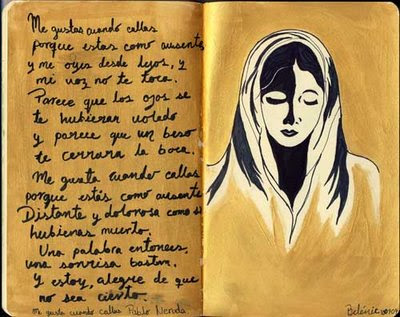 Me gustas cuando callas
porque estas como ausente
y me oyes desde lejos, y
mi voz no te toca.
Parece que los ojos se
te hubieran volado
y parece que un beso
te cerrara la boca.
Me gusta cuando callas
porque estás como ausente
Distante y dolorosa como si
hubieras muerto.
Una palabra entonces,
una sonrisa bastan.
Y estoy, alegre de que
no sea cierto.
Me gusta cuando callas Pablo Neruda